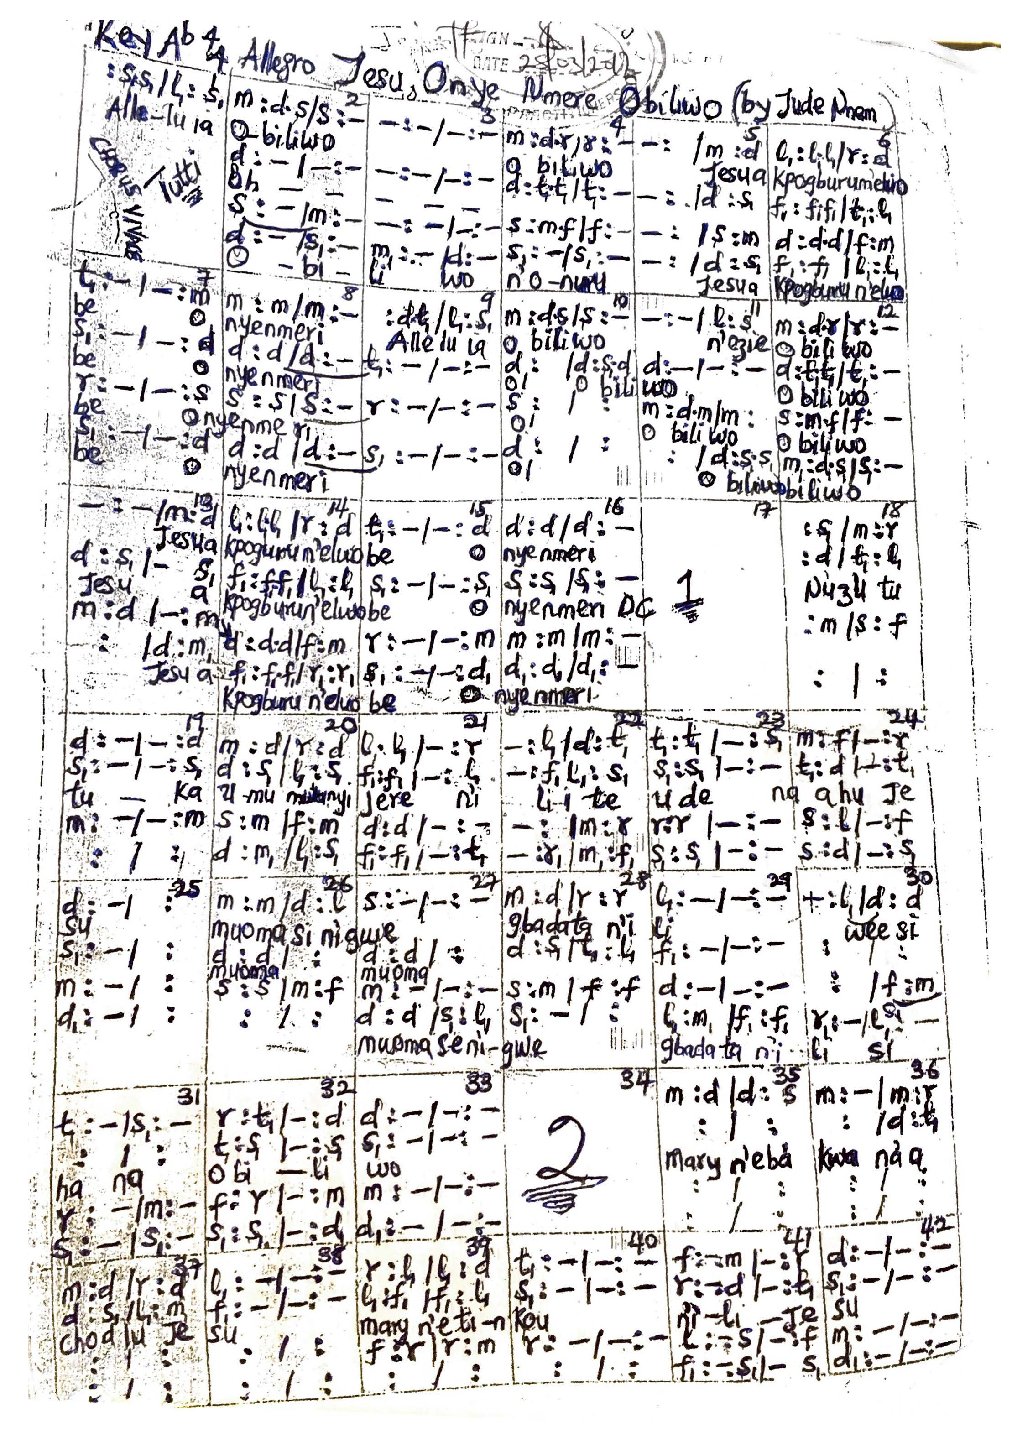 Key Ab 4
4 Allegro Jesu, Onye Nmere Obiliwo (by Jude Nnam)
SIGN
DATE 28/03/2012
:s₁s₁/l₁:s₁
Alle-lu ia
CHORUS VIVACE
Tutti
2
m:d.s/s:-
O-biliwo
d:-/-:-
Oh - -
s:-/m:-
d:-/s₁:-
O - bi -
3
-:-/-:-
-:-/-:-
- - - -
-:-/-:-
m₁:-/d:-
li wo
4
m:d.r/r:-
O biliwo
d:t₁.t₁/t₁:-
s:m.f/f:-
s₁:-/s₁:-
n'o-nunu
5
-: /m:d
Jesu a
-: /d:s₁
-: /s:m
-: /d:s₁
Jesu a
6
l₁:l₁.l₁/r:d
Kpogburumeluo
f₁:f₁f₁/t₁:l₁
d:d.d/f:m
f₁:f₁/l₁:l₁
Kpogburu n'eluo
7
t₁:-/-:m
be O
s₁:-/-:d
be O
r:-/-:s
be O
s₁:-/-:d
be O
8
m:m/m:-
nyenmeri
d:d/d:-
nyenmeri
s:s/s:-
nyenmeri
d:d/d:-
nyenmeri
9
:d.t₁/l₁:s₁
Alle lu ia
t₁:-/-:-
r:-/-:-
s₁:-/-:-
10
m:d.s/s:-
O biliwo
d: /d:s.d
O! O bili
s: / :
O!
d: / :
O!
11
-:-/l:s
n'ezie
d:-/-:-
wo
m:d.m/m:
O biliwo
: /d:s.s
O biliwo
12
m:d.r/r:-
O biliwo
d:t₁.t₁/t₁:-
O biliwo
s:m.f/f:-
O biliwo
m:d.s/s:-
biliwo
13
-:-/m:d
Jesu a
d:s₁/- s₁
Jesu a
m:d/-:m
: /d:m₁
Jesu a
14
l₁:l₁.l₁/r:d
Kpogburu n'eluo
f₁:f.f₁/l₁:l₁
Kpogburun'eluo
d:d.d/f:m
f₁:f₁.f₁/r₁:r₁
Kpogburu n'eluo
15
t₁:-/-:d
be O
s₁:-/-:s₁
be O
r:-/-:m
s₁:-/-:d₁
be O
16
d:d/d:-
nyenmeri
s:s₁/s₁:-
nyenmeri DC
m:m/m:-
d₁:d₁/d₁:-
nyenmeri
17
1
18
:s/m:r
:d/t₁:l₁
Nuzu tu
:m/s:f
: / :
19
d:-/-:d
s₁:-/-:s₁
tu - ka
m:-/-:m
: / :
20
m:d/r:d
d:s₁/l₁:s₁
s:m/f:m
d:m₁/l₁:s₁
21
l₁:l₁/-:r
f₁:f₁/-:l₁
jere ni
d:d/-:-
f₁:f₁/-:t₁
22
-:l₁/d:t₁
-:f₁/l₁:s₁
li i te
-: /m:r
-:r₁/m₁:f₁
23
t₁:t₁/-:s₁
s₁:s₁/-:-
u de na
r:r/-:-
s₁:s₁/-:-
24
m:f/-:r
t₁:d/-:t₁
a hu Je
s:l/-:f
s:d/-:s₁
25
d:-/ :
su
s₁:-/ :
m:-/ :
d₁:-/ :
26
m:m/d:l
muoma si n'igwe
d:d/ :
muoma
s:s/m:f
: / :
27
s:-/-:-
d:d/ :
muoma
m:-/-:-
d:d/s₁:l₁
muoma seni-gwe
28
m:d/r:r
gbadata n'i
d:s₁/t₁:l₁
s:m/f:f
s₁:-/ :
29
l₁:-/-:-
li
f₁:-/-:-
d:-/-:-
l₁:m₁/f₁:f₁
gbadata n'i
30
-:l₁/d:d
wee si
: / :
: /f:m
si
r₁:-/l₁:-
li si
31
t₁:-/s₁:-
: / :
ha na
r:-/m:-
s₁:-/s₁:-
32
r:t₁/-:d
t₁:s₁/-:s₁
O bi - li
f:r/-:m
s₁:s₁/-:d₁
33
d:-/-:-
s₁:-/-:-
wo
m:-/-:-
d₁:-/-:-
34
2
35
m:d/d:s
: / :
mary n'eba
: / :
: / :
36
m:-/m:r
: /d:t₁
kwa na a
: / :
: / :
37
m:d/r:d
d:s₁/l₁:m
cho d'lu Je
: / :
: / :
38
l₁:-/-:-
f₁:-/-:-
su
: / :
: / :
39
r:l₁/l₁:d
l₁:f₁/f₁:l₁
mary n'eti-n
f:r/r:m
: / :
40
t₁:-/-:-
s₁:-/-:-
kou
r:-/-:-
: / :
41
f:-m/-:r
r:-d/-:t₁
n'i-li Je
l:-s/-:f
f₁:-s₁/- s₁
42
d:-/-:-
s₁:-/-:-
su
m:-/-:-
d₁:-/-:-